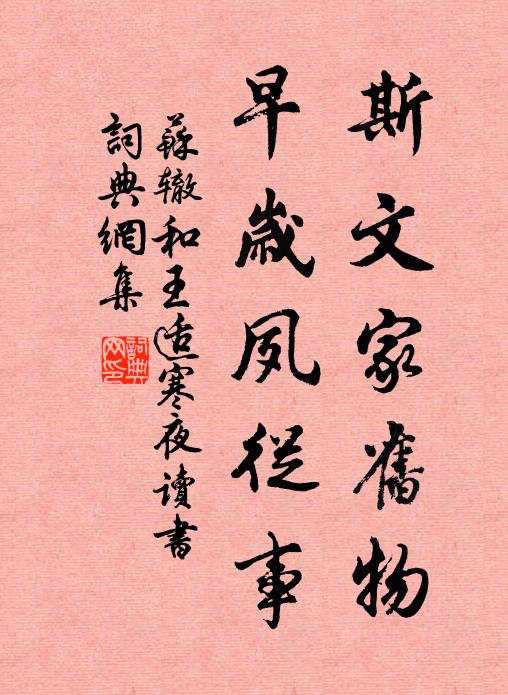 斯文家舊物
早歲夙從事
蘇辙和王适寒夜讀書
詞典網集
詞典网印